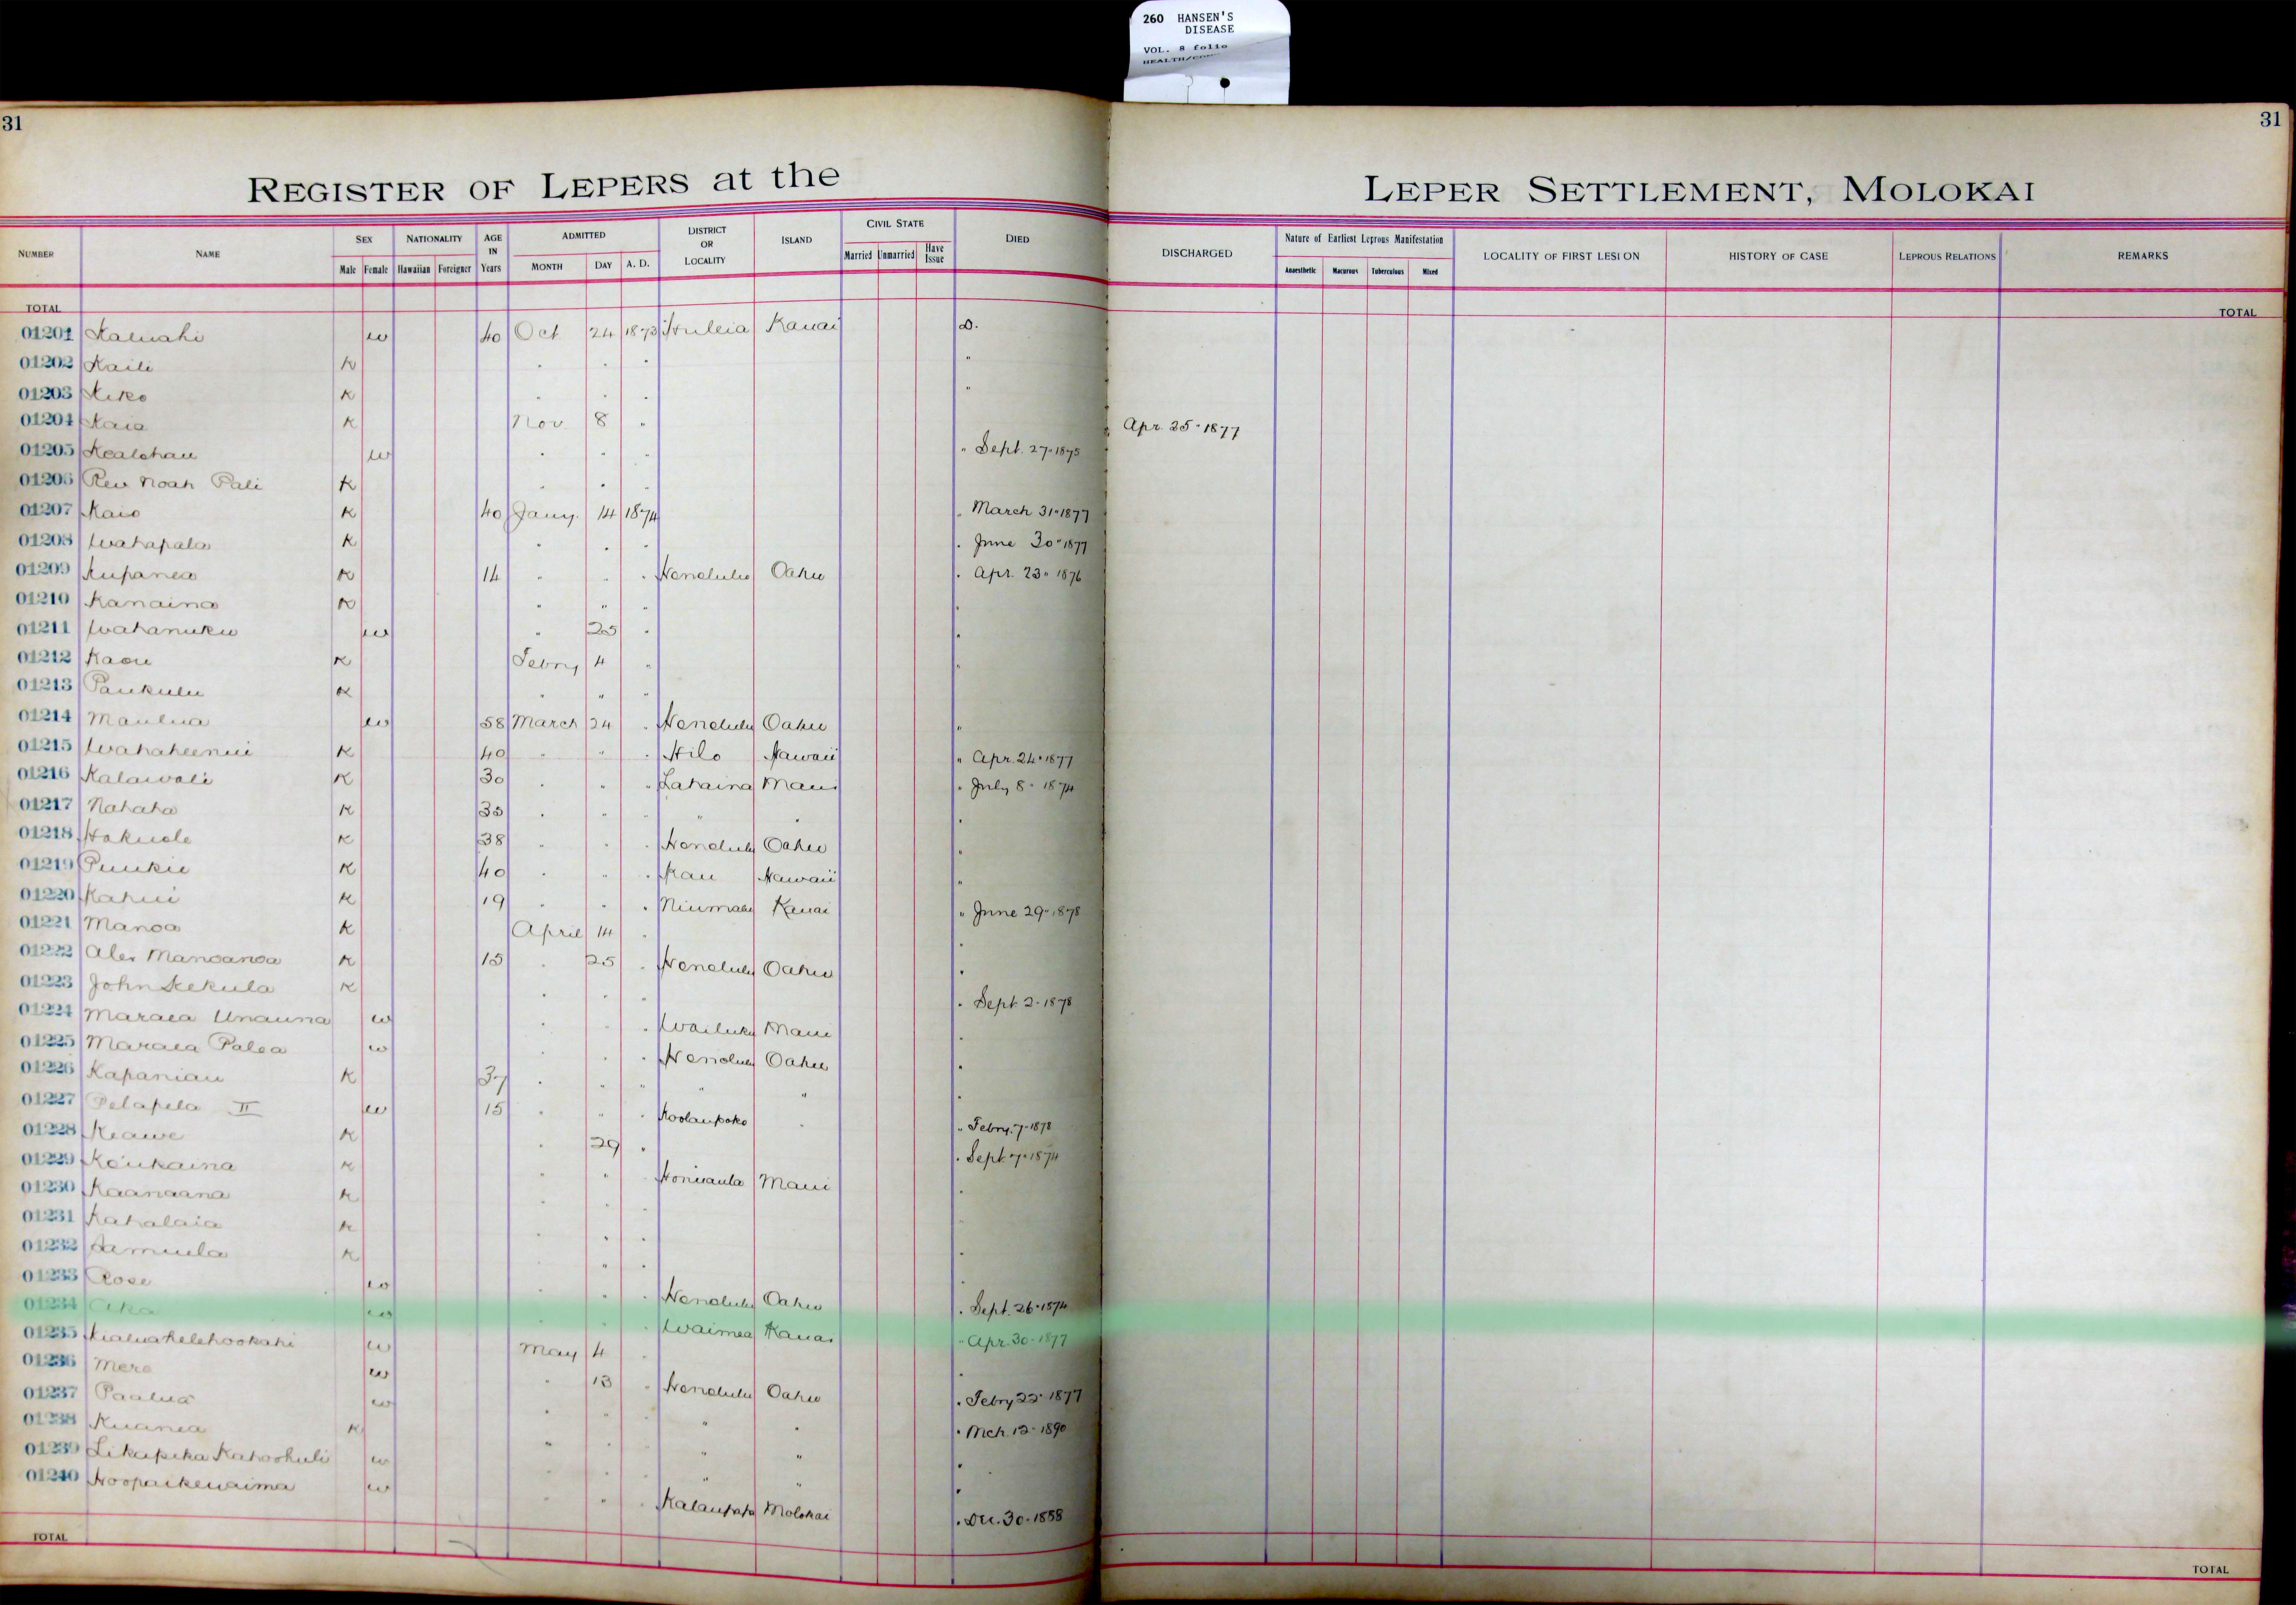 260 HANSEN'S
DISEASE
VOL. 8 folio
31
31
REGISTER OF LEPERS at the LEPER SETTLEMENT, MOLOKAI
NUMBER NAME SEX NATIONALITY AGE IN Years ADMITTED DISTRICT OR LOCALITY ISLAND CIVIL STATE DIED DISCHARGED Nature of Earliest Leprous Manifestation LOCALITY OF FIRST LESION HISTORY OF CASE LEPROUS RELATIONS REMARKS
Male Female Hawaiian Foreigner MONTH DAY A. D. Married Unmarried Have Issue Anaesthetic Macurous Tuberculous Mixed
TOTAL TOTAL
01201 Kaluahi w 40 Oct 24 1873 Huleia Kauai D.
01202 Kaili K " " " "
01203 Kiko K " " " "
01204 Kaia K Nov 8 " " Apr. 25" 1877
01205 Kealohau w " " " " Sept. 27" 1875
01206 Rev Noah Pali K " " "
01207 Kaio K 40 Jany. 14 1874 " March 31" 1877
01208 Wahapala K " " " " June 30" 1877
01209 Kupanea K 14 " " " Honolulu Oahu " Apr. 23" 1876
01210 Kanaina K " " " "
01211 Wahanuku w " 25 " "
01212 Kaou K Febry 4 " "
01213 Paukulu K " " "
01214 Maulua w 58 March 24 " Honolulu Oahu "
01215 Wahaheenui K 40 " " " Hilo Hawaii " Apr. 24" 1877
01216 Kalawali K 30 " " " Lahaina Maui " July 8" 1874
01217 Nahaha K 35 " " " " " "
01218 Hokuole K 38 " " " Honolulu Oahu "
01219 Puukie K 40 " " " Kau Hawaii "
01220 Kahui K 19 " " " Niumalu Kauai " June 29" 1878
01221 Manoa K April 14 " "
01222 Alex Manoanoa K 15 " 25 " Honolulu Oahu "
01223 John Kekula K " " " " Sept. 2" 1878
01224 Maraea Unauna w " " " Wailuku Maui "
01225 Maraea Palea w " " " Honolulu Oahu "
01226 Kapaniau K 37 " " " " " "
01227 Pelapela II w 15 " " " Koolaupoko " " Febry. 7" 1878
01228 Keawe K " 29 " " Sept. 7" 1874
01229 Koukaina K " " " Honuaula Maui "
01230 Kaanaana K " " " "
01231 Kahalaia K " " "
01232 Samuela K " " "
01233 Rose w " " " Honolulu Oahu " Sept. 26" 1874
01234 Aka w " " " Waimea Kauai " Apr. 30" 1877
01235 Kialuahelehookahi w May 4 " "
01236 Mere w " 13 " Honolulu Oahu " Febry 22" 1877
01237 Paalua w " " " " " " Mch. 12" 1890
01238 Kuanea K " " " " " "
01239 Likapeka Kahoohuli w " " " " " "
01240 Hoopaikewaima w " " " Kalaupapa Molokai " Dec. 30" 1888
TOTAL TOTAL